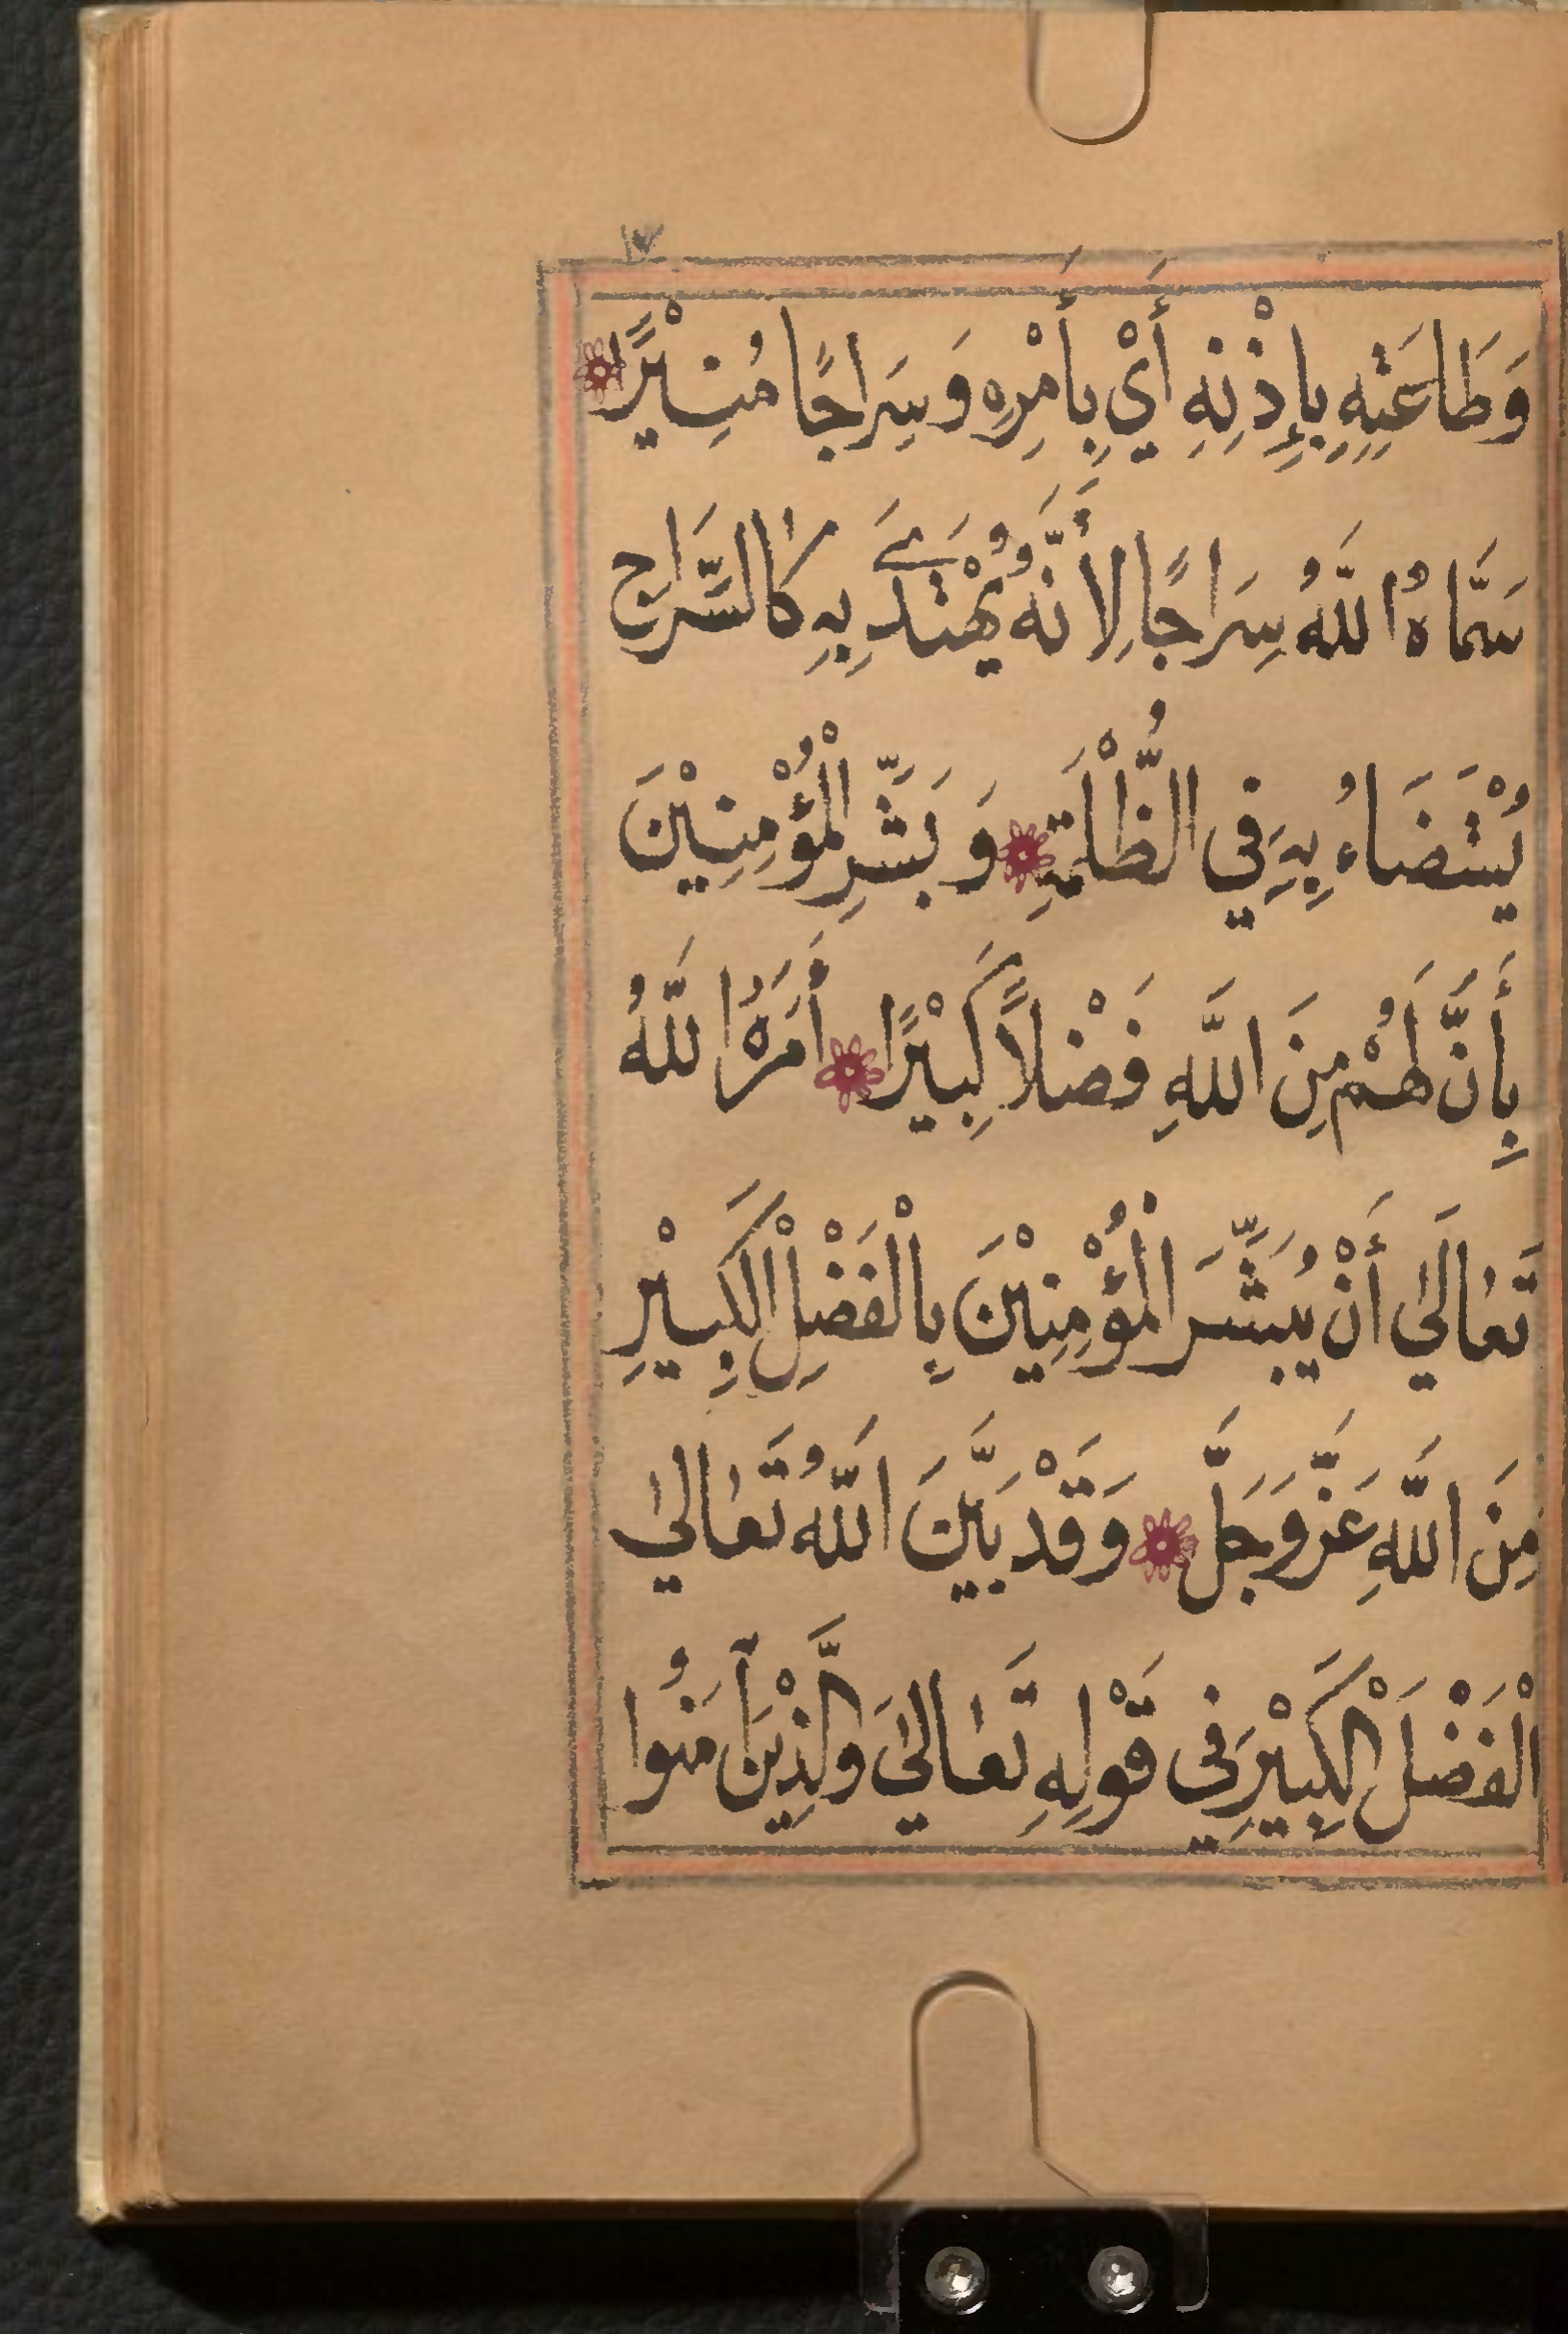 ١٧
وَطَاعَتِهِ بِإِذْنِهِ أَيْ بِأَمْرِهِ وَسِرَاجًا مُنِيْرًا
سَمَّاهُ اللَّهُ سِرَاجًا لِأَنَّهُ يُهْتَدَى بِهِ كَالسِّرَاجِ
يُسْتَضَاءُ بِهِ فِي الظُّلْمَةِ وَبَشِّرِ الْمُؤْمِنِيْنَ
بِأَنَّ لَهُمْ مِنَ اللَّهِ فَضْلاً كَبِيْرًا أَمَرَهُ اللَّهُ
تَعَالَى أَنْ يُبَشِّرَ الْمُؤْمِنِيْنَ بِالْفَضْلِ الْكَبِيْرِ
مِنَ اللَّهِ عَزَّ وَجَلَّ وَقَدْ بَيَّنَ اللَّهُ تَعَالَى
الْفَضْلَ الْكَبِيْرَ فِي قَوْلِهِ تَعَالَى وَالَّذِيْنَ آمَنُوا